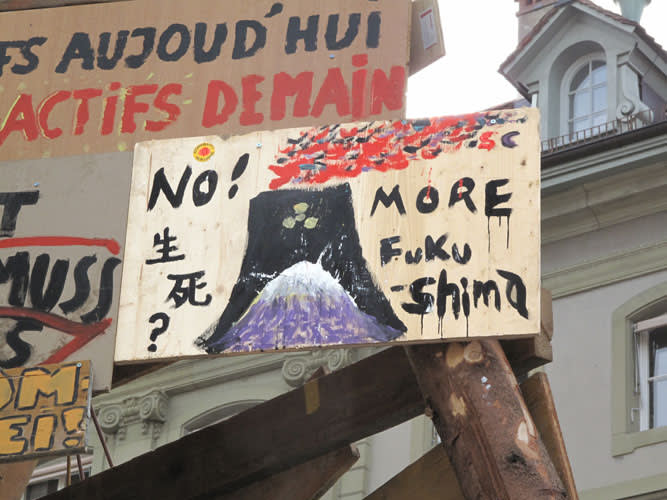 FS AUJOURD'HUI
ACTIFS DEMAIN
NO!
MORE
生
死
?
FUKU
-SHIMA
T
MUSS
S
OM
EI!